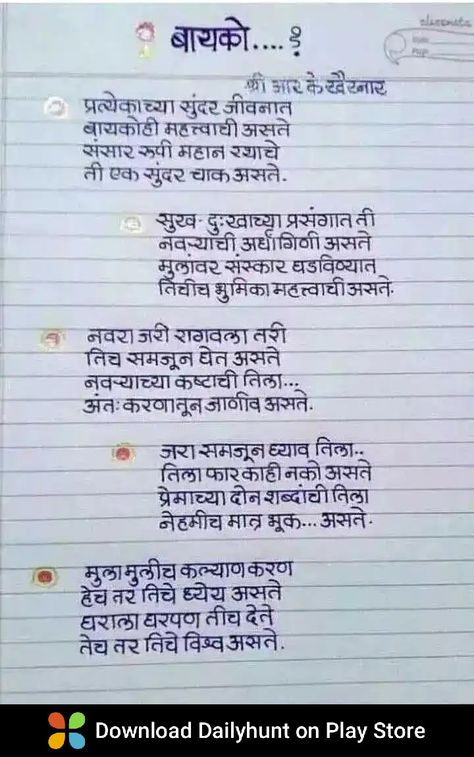 बायको....?
श्री आर के खैरनार
प्रत्येकाच्या सुंदर जीवनात
बायकोही महत्त्वाची असते
संसार रूपी महान रथाचे
ती एक सुंदर चाक असते.
सुख-दुःखाच्या प्रसंगात ती
नवऱ्याची अर्धांगिणी असते
मुलांवर संस्कार घडविण्यात
तिचीच भुमिका महत्त्वाची असते.
नवरा जरी रागवला तरी
तिच समजून घेत असते
नवऱ्याच्या कष्टाची तिला...
अंतःकरणातून जाणीव असते.
जरा समजून घ्याव तिला..
तिला फार काही नको असते
प्रेमाच्या दोन शब्दांची तिला
नेहमीच मात्र भूक... असते.
मुला मुलीच कल्याण करण
हेच तर तिचे ध्येय असते
घराला घरपण तीच देते
तेच तर तिचे विश्व असते.
Download Dailyhunt on Play Store